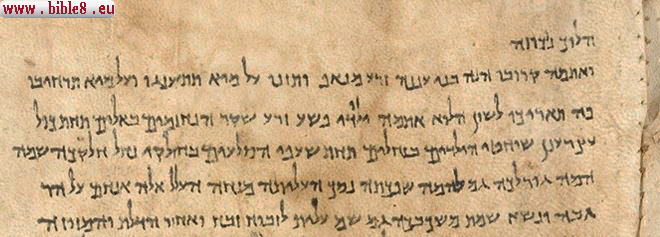 www.bible8.eu
הלוך נכוחה
ואתמה קרובו הנה בני עננה זרע מנאפ ותזנו על מיא תתענגו ועל מיא תרחיבו
פה תאריכו לשון הלוא אתמה ילדי פשע זרע שקר הנחומים באלים תחת כול
עץ רענן שוחטי הילדים בנחלים תחת סעפי הסלעים בחלקי נחל שמה
המה גורלכה גם להמה שפכתה נסך העליתה מנחה העל אלה אנחם על הר
גבה ונשא שמת משכבכה גם שם עלית לזבוח זבח ואחר הדלת והמזוזה